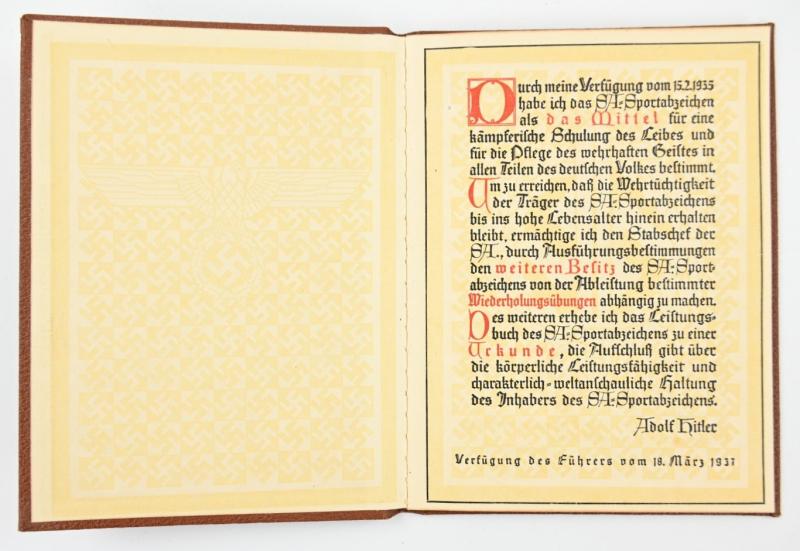 Durch meine Verfügung vom 15.2.1935
habe ich das SA-Sportabzeichen
als das Mittel für eine
kämpferische Schulung des Leibes und
für die Pflege des wehrhaften Geistes in
allen Teilen des deutschen Volkes bestimmt.
Um zu erreichen, daß die Wehrtüchtigkeit
der Träger des SA-Sportabzeichens
bis ins hohe Lebensalter hinein erhalten
bleibt, ermächtige ich den Stabschef der
SA., durch Ausführungsbestimmungen
den weiteren Besitz des SA-Sport-
abzeichens von der Ableistung bestimmter
Wiederholungsübungen abhängig zu machen.
Des weiteren erhebe ich das Leistungs-
buch des SA-Sportabzeichens zu einer
Urkunde, die Aufschluß gibt über
die körperliche Leistungsfähigkeit und
charakterlich-weltanschauliche Haltung
des Inhabers des SA-Sportabzeichens.
Adolf Hitler
Verfügung des Führers vom 18. März 1937